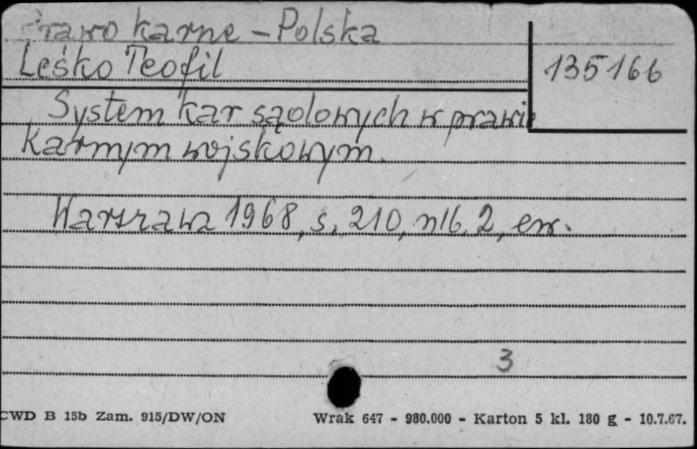 Prawo karne - Polska
Leśko Teofil
135166
System kar sądowych w prawie
karnym wojskowym.
Warszawa 1968, s. 210, nlb. 2, err.
3
CWD B 15b Zam. 915/DW/ON
Wrak 647 - 980.000 - Karton 5 kl. 180 g - 10.7.67.